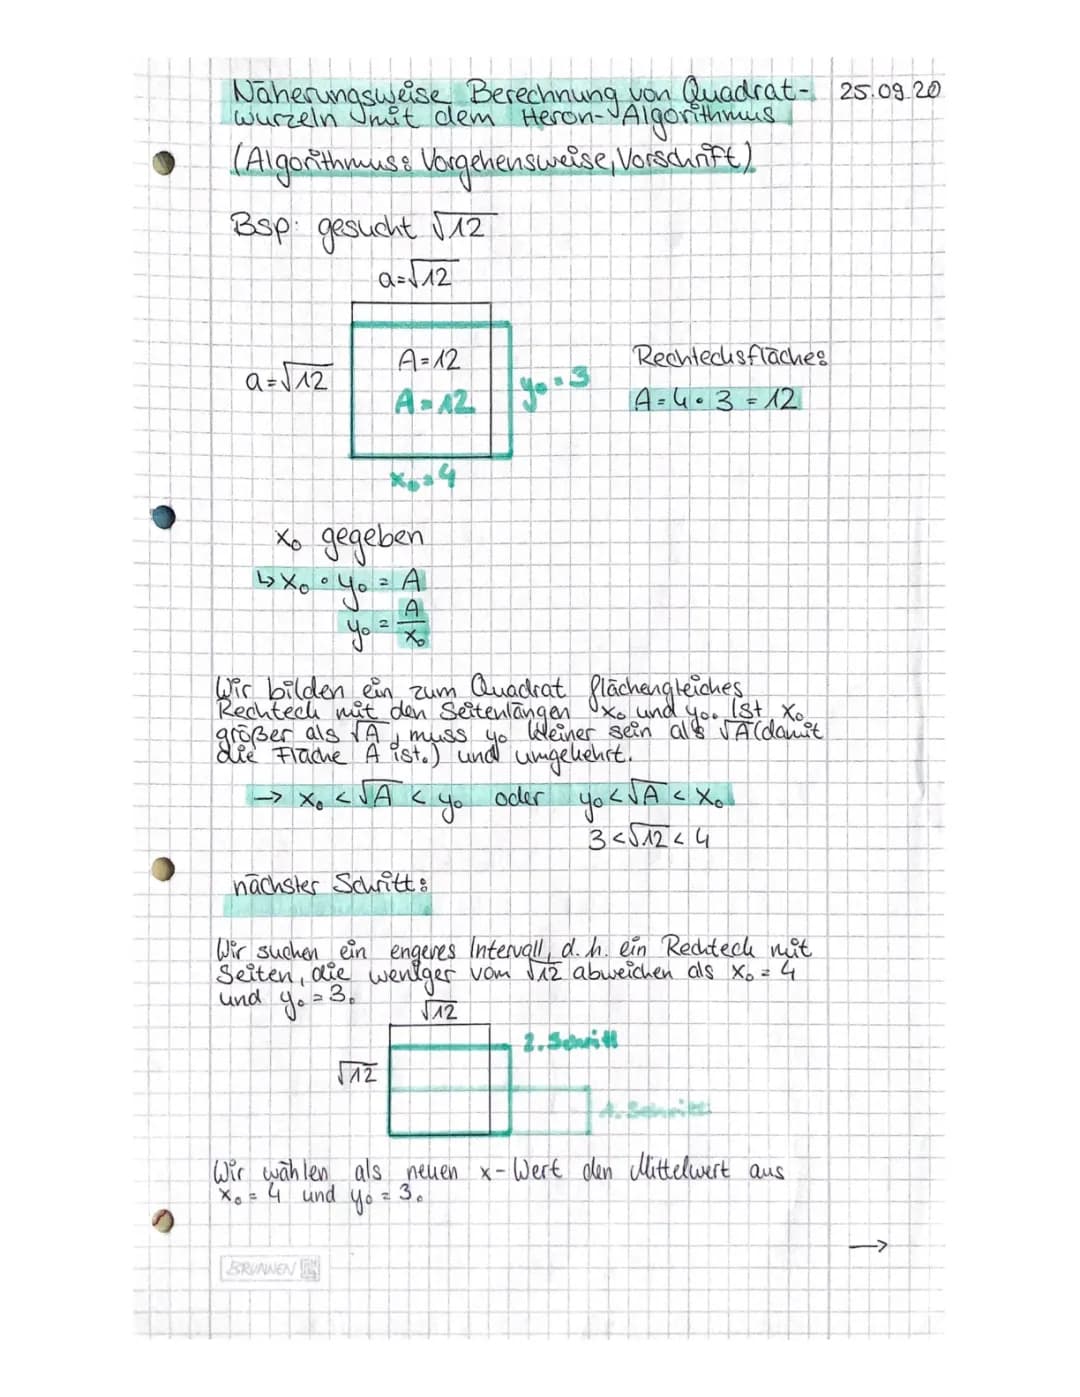 Näherungsweise Berechnung von Quadrat- 25.09.20
wurzeln mit dem Heron-Algorithmus
(Algorithmus: Vorgehensweise, Vorschrift)
Bsp: gesucht √12
a=√12
A=12
Rechtecksfläche:
a=√12
y₀=3
A=12
A=4·3=12
x₀=4
x₀ gegeben
↳ x₀ · y₀ = A
y₀ = A/x₀
Wir bilden ein zum Quadrat flächengleiches
Rechteck mit den Seitenlängen x₀ und y₀. Ist x₀
größer als √A, muss y₀ kleiner sein als √A (damit
die Fläche A ist.) und umgekehrt.
→ x₀ < √A < y₀ oder y₀ < √A < x₀
3 < √12 < 4
nächster Schritt:
Wir suchen ein engeres Intervall, d.h. ein Rechteck mit
Seiten, die weniger vom √12 abweichen als x₀ = 4
und y₀ = 3.
√12
2. Schritt
√12
1. Schritt
Wir wählen als neuen x-Wert den Mittelwert aus
x₀ = 4 und y₀ = 3.
→
BRUNNEN